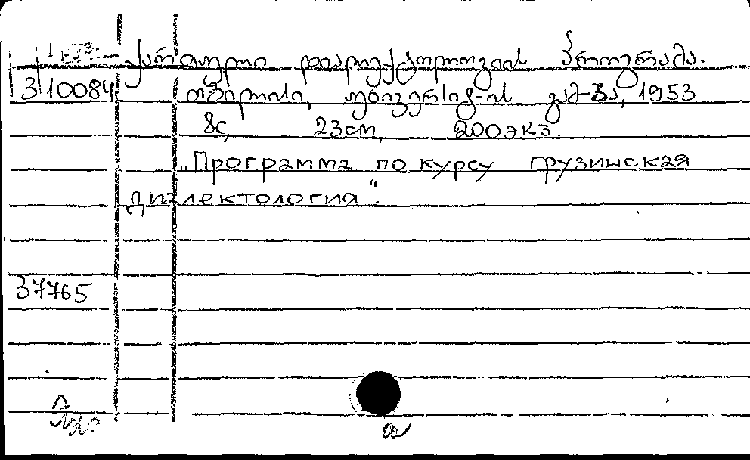 ქართული დიალექტოლოგიის პროგრამა.
310084 თბილისი, უნივერსიტ-ის გამ-ბა, 1953
8с, 23см, 200экз.
„Программа по курсу грузинская
диалектология".
37765